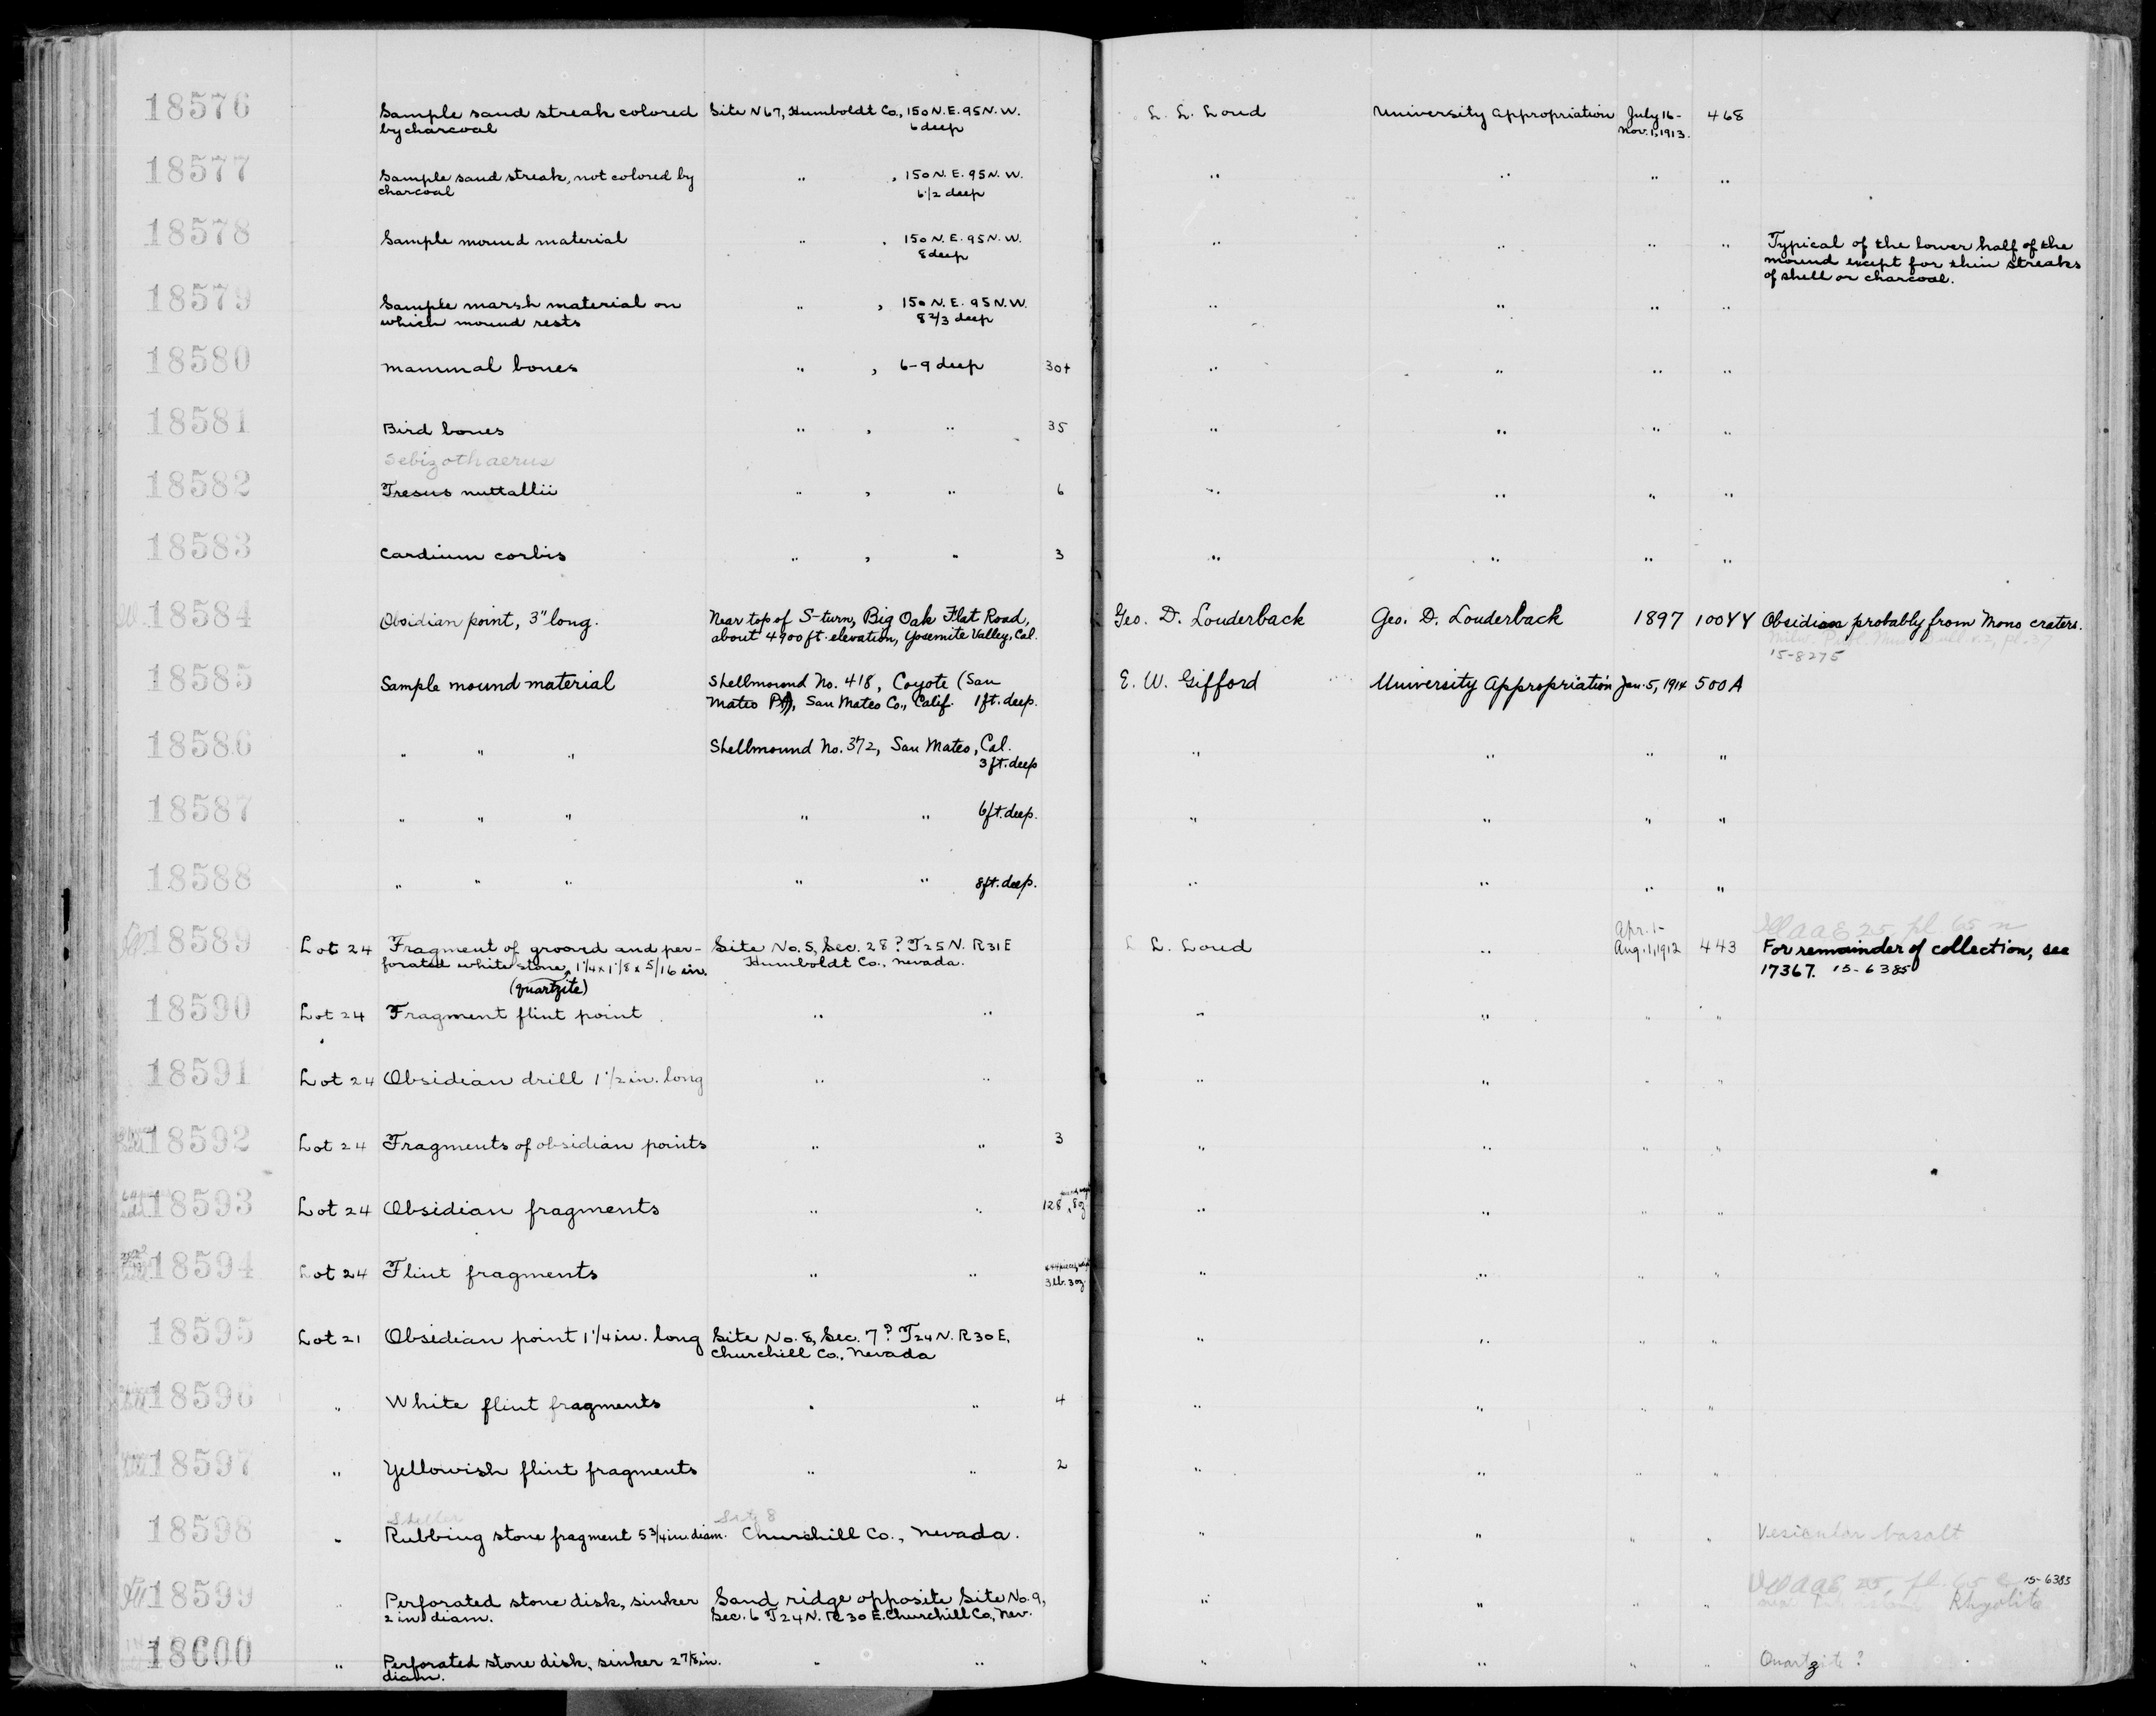 18576 Sample sand streak colored Site N67, Humboldt Co., 150 N.E. 95 N.W. L. L. Loud University Appropriation July 16- 468
by charcoal 6 deep Nov. 1, 1913.
18577 Sample sand streak, not colored by " , 150 N.E. 95 N.W. " " " "
charcoal 6 1/2 deep
18578 Sample mound material " , 150 N.E. 95 N.W. " " " " Typical of the lower half of the
8 deep mound except for thin streaks
of shell or charcoal.
18579 Sample marsh material on " , 150 N.E. 95 N.W. " " " "
which mound rests 8 2/3 deep
18580 Mammal bones " , 6-9 deep 30+ " " " "
18581 Bird bones " , " 35 " " " "
Schizothaerus
18582 Tresus nuttallii " , " 6 " " " "
18583 Cardium corbis " , " 3 " " " "
18584 Obsidian point, 3" long. Near top of S-turn, Big Oak Flat Road, Geo. D. Louderback Geo. D. Louderback 1897 100YY Obsidian probably from Mono craters.
about 4900 ft. elevation, Yosemite Valley, Cal.
15-8275
18585 Sample mound material Shellmound No. 418, Coyote (San E. W. Gifford University Appropriation Jan. 5, 1914 500A
Mateo Pt), San Mateo Co., Calif. 1 ft. deep.
18586 " " " Shellmound No. 372, San Mateo, Cal. " " " "
3 ft. deep
18587 " " " " " 6 ft. deep. " " " "
18588 " " " " " 8 ft. deep. " " " "
Apr. 1- pl 65 n
18589 Lot 24 Fragment of grooved and per- Site No. 5, Sec. 28? T25N. R31E L. L. Loud " Aug. 1, 1912 443 For remainder of collection, see
forated white stone, 1 1/4 x 1 1/8 x 5/16 in. Humboldt Co., Nevada. 17367. 15-6385
(quartzite)
18590 Lot 24 Fragment flint point " " " " " "
18591 Lot 24 Obsidian drill 1 1/2 in. long " " " " " "
18592 Lot 24 Fragments of obsidian points " " 3 " " " "
18593 Lot 24 Obsidian fragments " " 128, 8 oz " " " "
18594 Lot 24 Flint fragments " " 3 lb. 3 oz. " " " "
18595 Lot 21 Obsidian point 1 1/4 in. long Site No. 8, Sec. 7? T24N. R30E, " " " "
Churchill Co., Nevada
18596 " White flint fragments " " 4 " " " "
18597 " Yellowish flint fragments " " 2 " " " "
18598 " Rubbing stone fragment 5 3/4 in. diam. Churchill Co., Nevada. " " " " Vesicular basalt
18599 " Perforated stone disk, sinker Sand ridge opposite Site No. 9, " " " " 15-6383
2 in diam. Sec. 6 T24N. R30E. Churchill Co., Nev. Rhyolite
18600 " Perforated stone disk, sinker 2 7/8 in. " " " " " " Quartzite ?
diam.